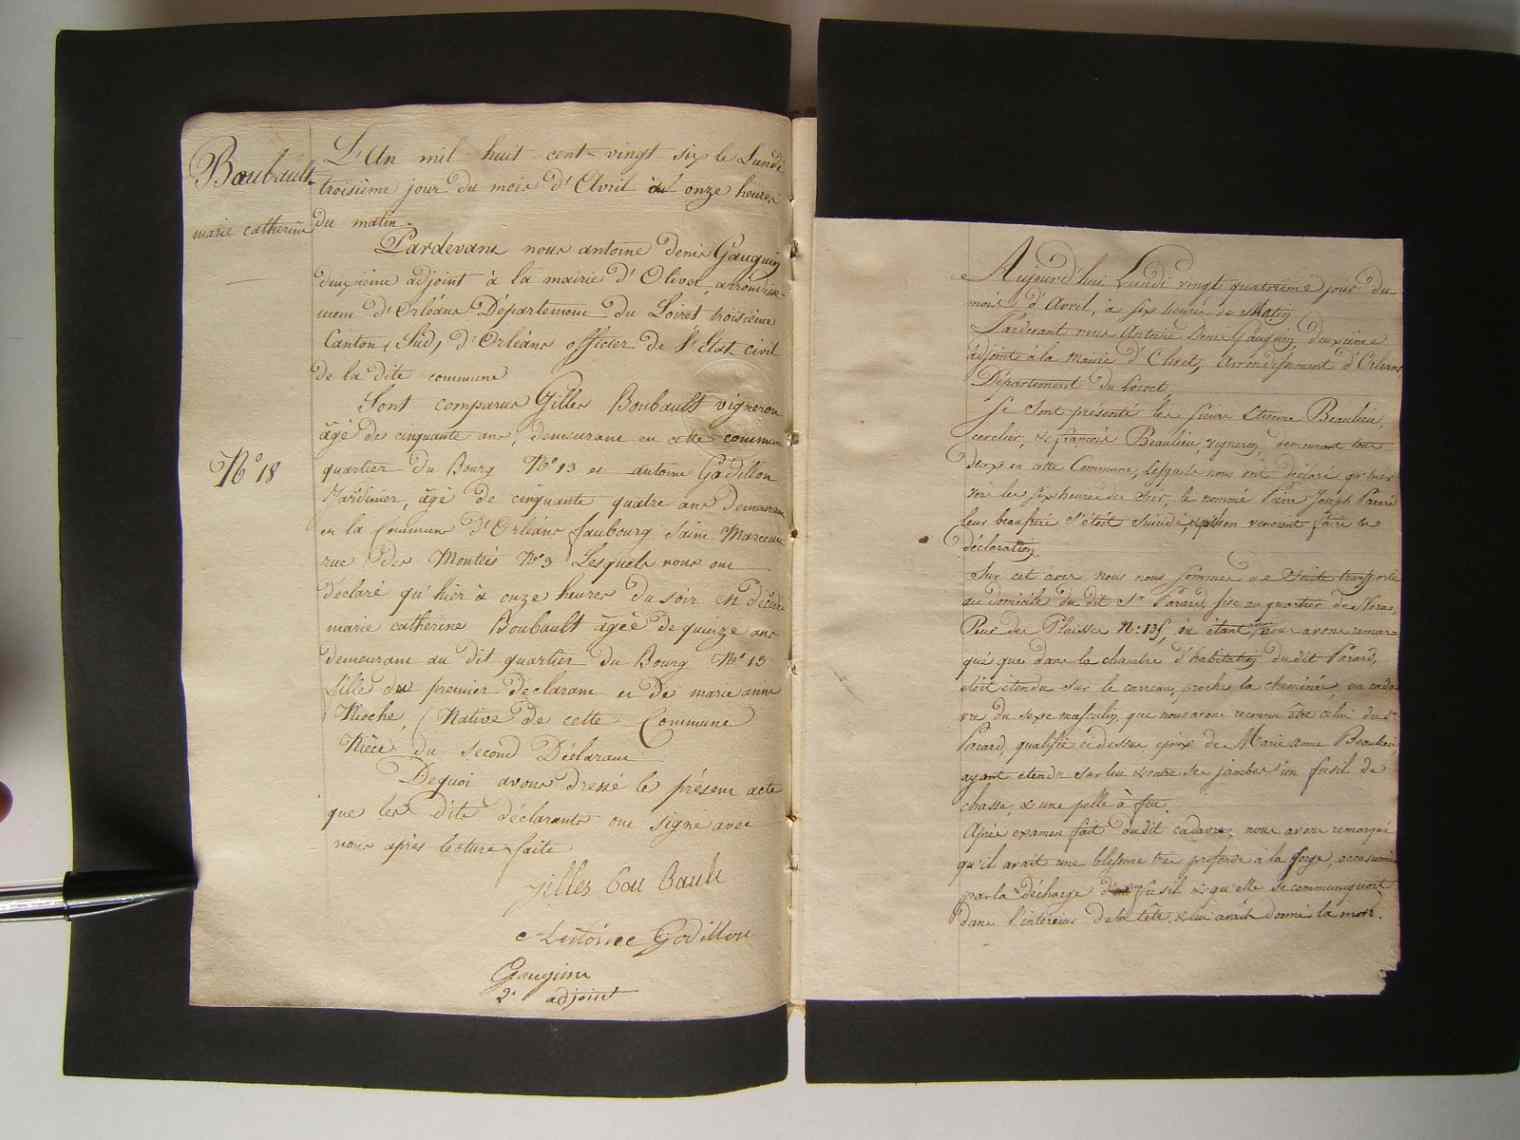 Boubault
marie catherine
N° 18
L'An mil huit cent vingt six le Lundi
troisieme jour du mois d'Avril onze heures
du matin.
Pardevant nous antoine denis Gauguin
deuxieme adjoint à la mairie d'Olivet, arrondisse-
ment d'Orléans Département du Loiret troisieme
Canton (Sud) d'Orléans officier de l'Etat civil
de la dite commune
Sont comparus Gilles Boubault vigneron
âgé de cinquante ans, demeurant en cette commune
quartier du Bourg N° 13 et antoine Godillon
Jardinier, âgé de cinquante quatre ans demeurant
en la commune d'Orléans faubourg Saint Marceau
rue des Montées N° 3 Lesquels nous ont
déclaré qu'hier à onze heures du soir est décédée
marie catherine Boubault âgée de quinze ans
demeurant au dit quartier du Bourg N° 13
fille du premier declarant et de marie anne
Mioche, Native de cette Commune
Niéce du second Déclarant
Dequoi avons dressé le présent acte
que les dits déclarants ont signé avec
nous après lecture faite
gilles bou bault
Antoine Godillon
Gauguin
2e adjoint
Aujourd'hui Lundi vingt quatrieme jour du
mois d'Avril, à six heures du Matin
Pardevant nous Antoine Denis Gauguin, deuxieme
adjoint à la Mairie d'Olivet, Arrondissement d'Orléans
Département du Loiret
Se sont présenté les sieurs Etienne Beaulieu,
cerclier, & françois Beaulieu, vigneron, demeurant tous
deux en cette Commune, lesquels nous ont déclaré
les six heures du soir, le nommé Pierre Joseph Parard
leur beaufrere s'était suicidé, & qu'ils en venoient faire la
déclaration
Sur cet avis nous nous sommes de suite transporté
au domicile du dit Sr Parard, sise au quartier de
Rue du Plaissis N: 135, où étant nous avons remar-
qué que dans la chambre d'habitation du dit Parard,
était étendu sur le carreau, proche la cheminée, un cada-
vre du sexe masculin, que nous avons reconnu être celui du Sr
Parard, qualifié ci dessus, époux de Marie Anne Beaulieu
ayant étendu sur lui & entre ses jambes un fusil de
chasse, & une pelle à feu.
Après examen fait dudit cadavre, nous avons remarqué
qu'il avait une blessure tres profonde à la gorge, occasionnée
par la décharge du fusil & qu'elle se communiquoit
dans l'intérieur de la tête & lui avait donné la mort.